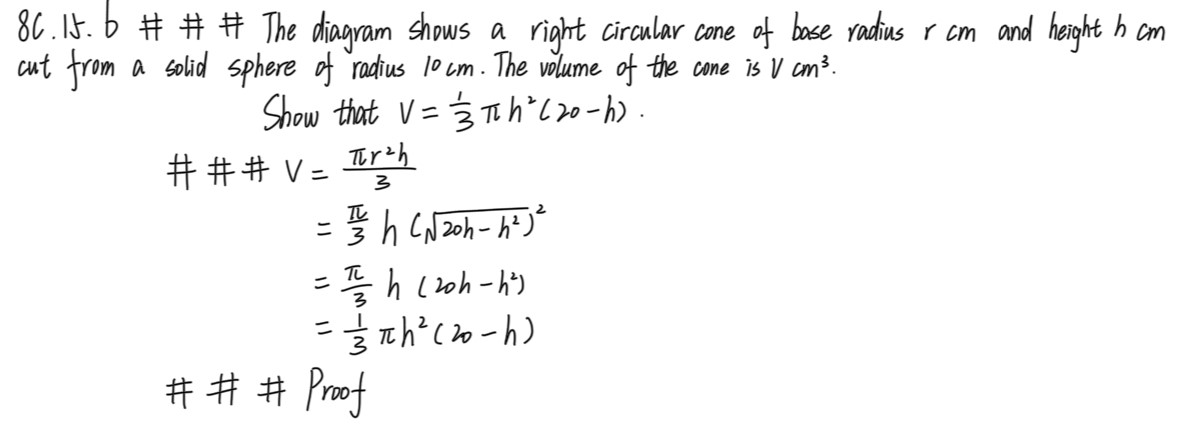 8C.15.b # # # The diagram shows a right circular cone of base radius r cm and height h cm
cut from a solid sphere of radius 10 cm. The volume of the cone is V cm³.
Show that V = 1/3 πh²(20-h).
# # # V = πr²h/3
= π/3 h (√(20h-h²))²
= π/3 h (20h-h²)
= 1/3 πh²(20-h)
# # # Proof